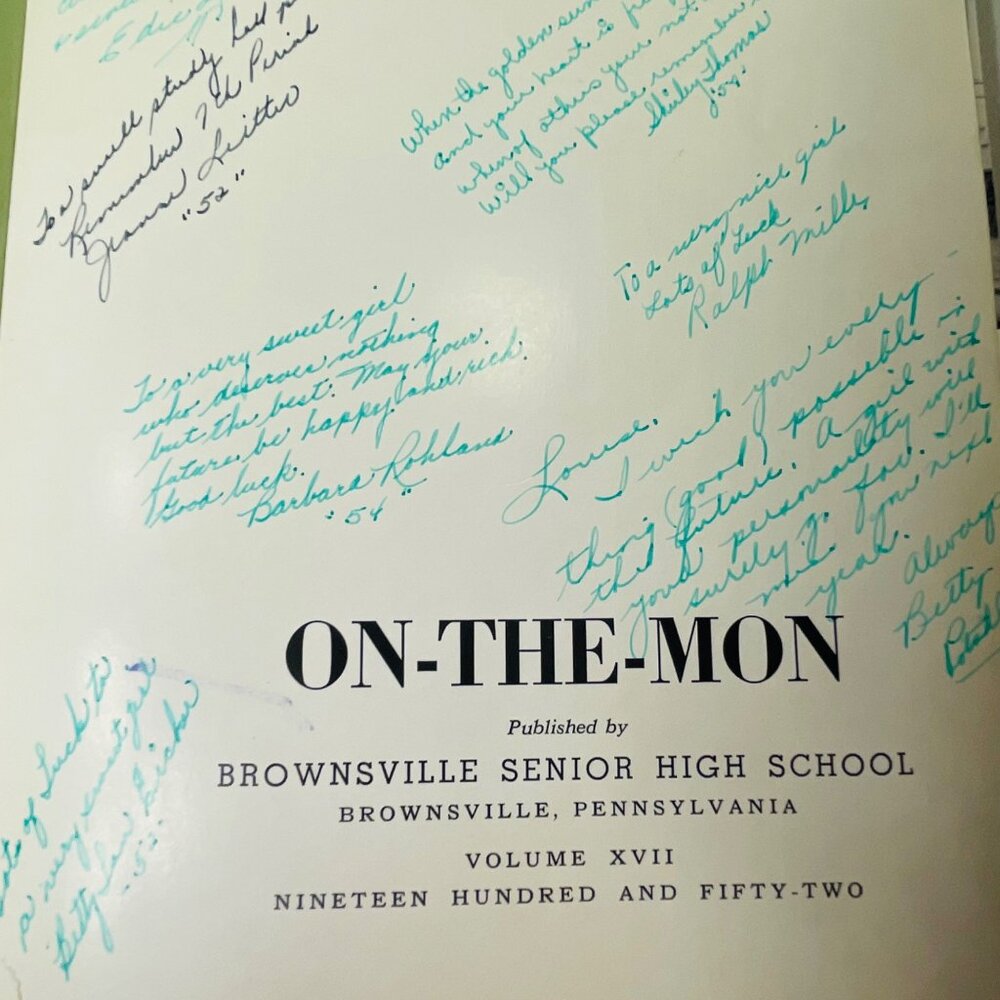 To a swell study hall
Remember 7th Period
Jeanne
"52"
When the golden sun
and your heart is
when of others your not
will you please remember
Shirley Thomas
'54'
To a very nice girl
Lots of Luck
Ralph Miller
To a very sweet girl
who deserves nothing
but the best. May your
future be happy and rich.
Good luck.
Barbara Rohland
"54"
Louise,
I wish you every-
thing (good) possible in
the future. A girl with
your personality will
surely go far. I'll
you next
year.
Always
Betty
ON-THE-MON
Published by
BROWNSVILLE SENIOR HIGH SCHOOL
BROWNSVILLE, PENNSYLVANIA
VOLUME XVII
NINETEEN HUNDRED AND FIFTY-TWO
of Luck to
a very sweet girl
Betty